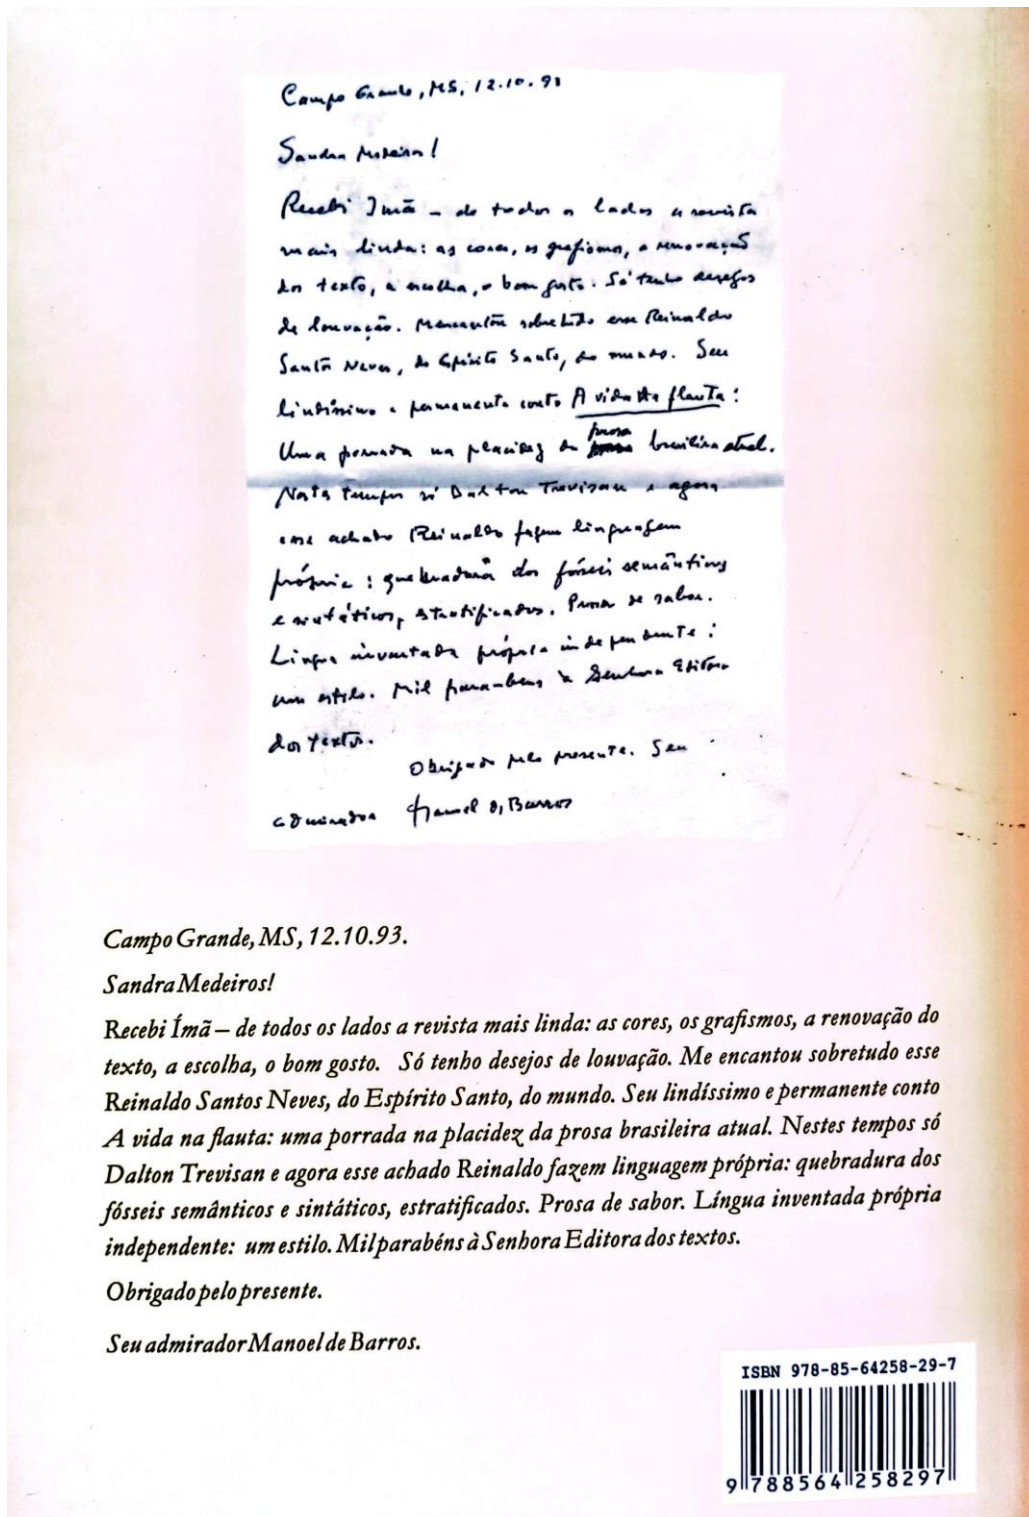 Campo Grande, MS, 12.10.93
Sandra Medeiros!
Recebi Imã – de todos os lados a revista
mais linda: as cores, os grafismos, a renovação
dos texto, a escolha, o bom gosto. Só tenho desejos
de louvação. Me encantou sobretudo esse Reinaldo
Santos Neves, do Espírito Santo, do mundo. Seu
lindíssimo e permanente conto A vida na flauta:
Uma porrada na placidez da prosa brasileira atual.
Nestes tempos só Dalton Trevisan e agora
esse achado Reinaldo fazem linguagem
própria: quebradura dos fósseis semânticos
e sintáticos, estratificados. Prosa de sabor.
Língua inventada própria independente:
um estilo. Mil parabens à Senhora Editora
dos textos.
Obrigado pelo presente. Seu
admirador Manoel de Barros
Campo Grande, MS, 12.10.93.
Sandra Medeiros!
Recebi Ímã – de todos os lados a revista mais linda: as cores, os grafismos, a renovação do
texto, a escolha, o bom gosto. Só tenho desejos de louvação. Me encantou sobretudo esse
Reinaldo Santos Neves, do Espírito Santo, do mundo. Seu lindíssimo e permanente conto
A vida na flauta: uma porrada na placidez da prosa brasileira atual. Nestes tempos só
Dalton Trevisan e agora esse achado Reinaldo fazem linguagem própria: quebradura dos
fósseis semânticos e sintáticos, estratificados. Prosa de sabor. Língua inventada própria
independente: um estilo. Mil parabéns à Senhora Editora dos textos.
Obrigado pelo presente.
Seu admirador Manoel de Barros.
ISBN 978-85-64258-29-7
9 788564 258297